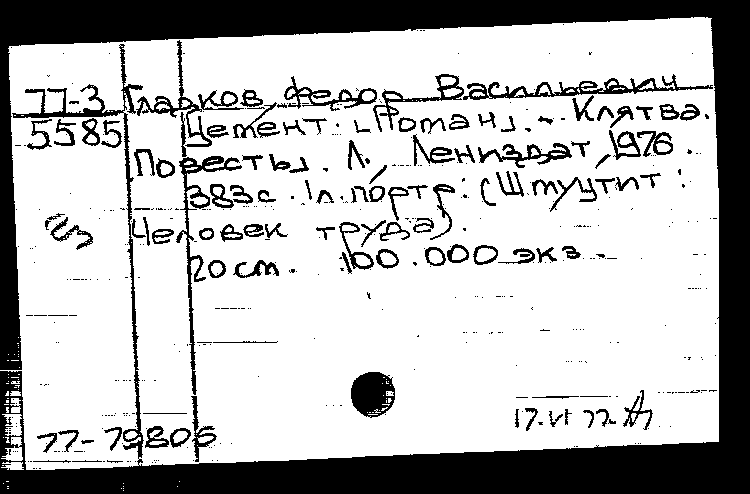 77-3 Гладков Федор Васильевич
5585 Цемент. [Роман]. - Клятва.
Повесть]. Л., Лениздат, 1976.
383 с. 1 л. портр.: (
Человек труда).
20 см. 100.000 экз.
77-79806 17.VI 77.